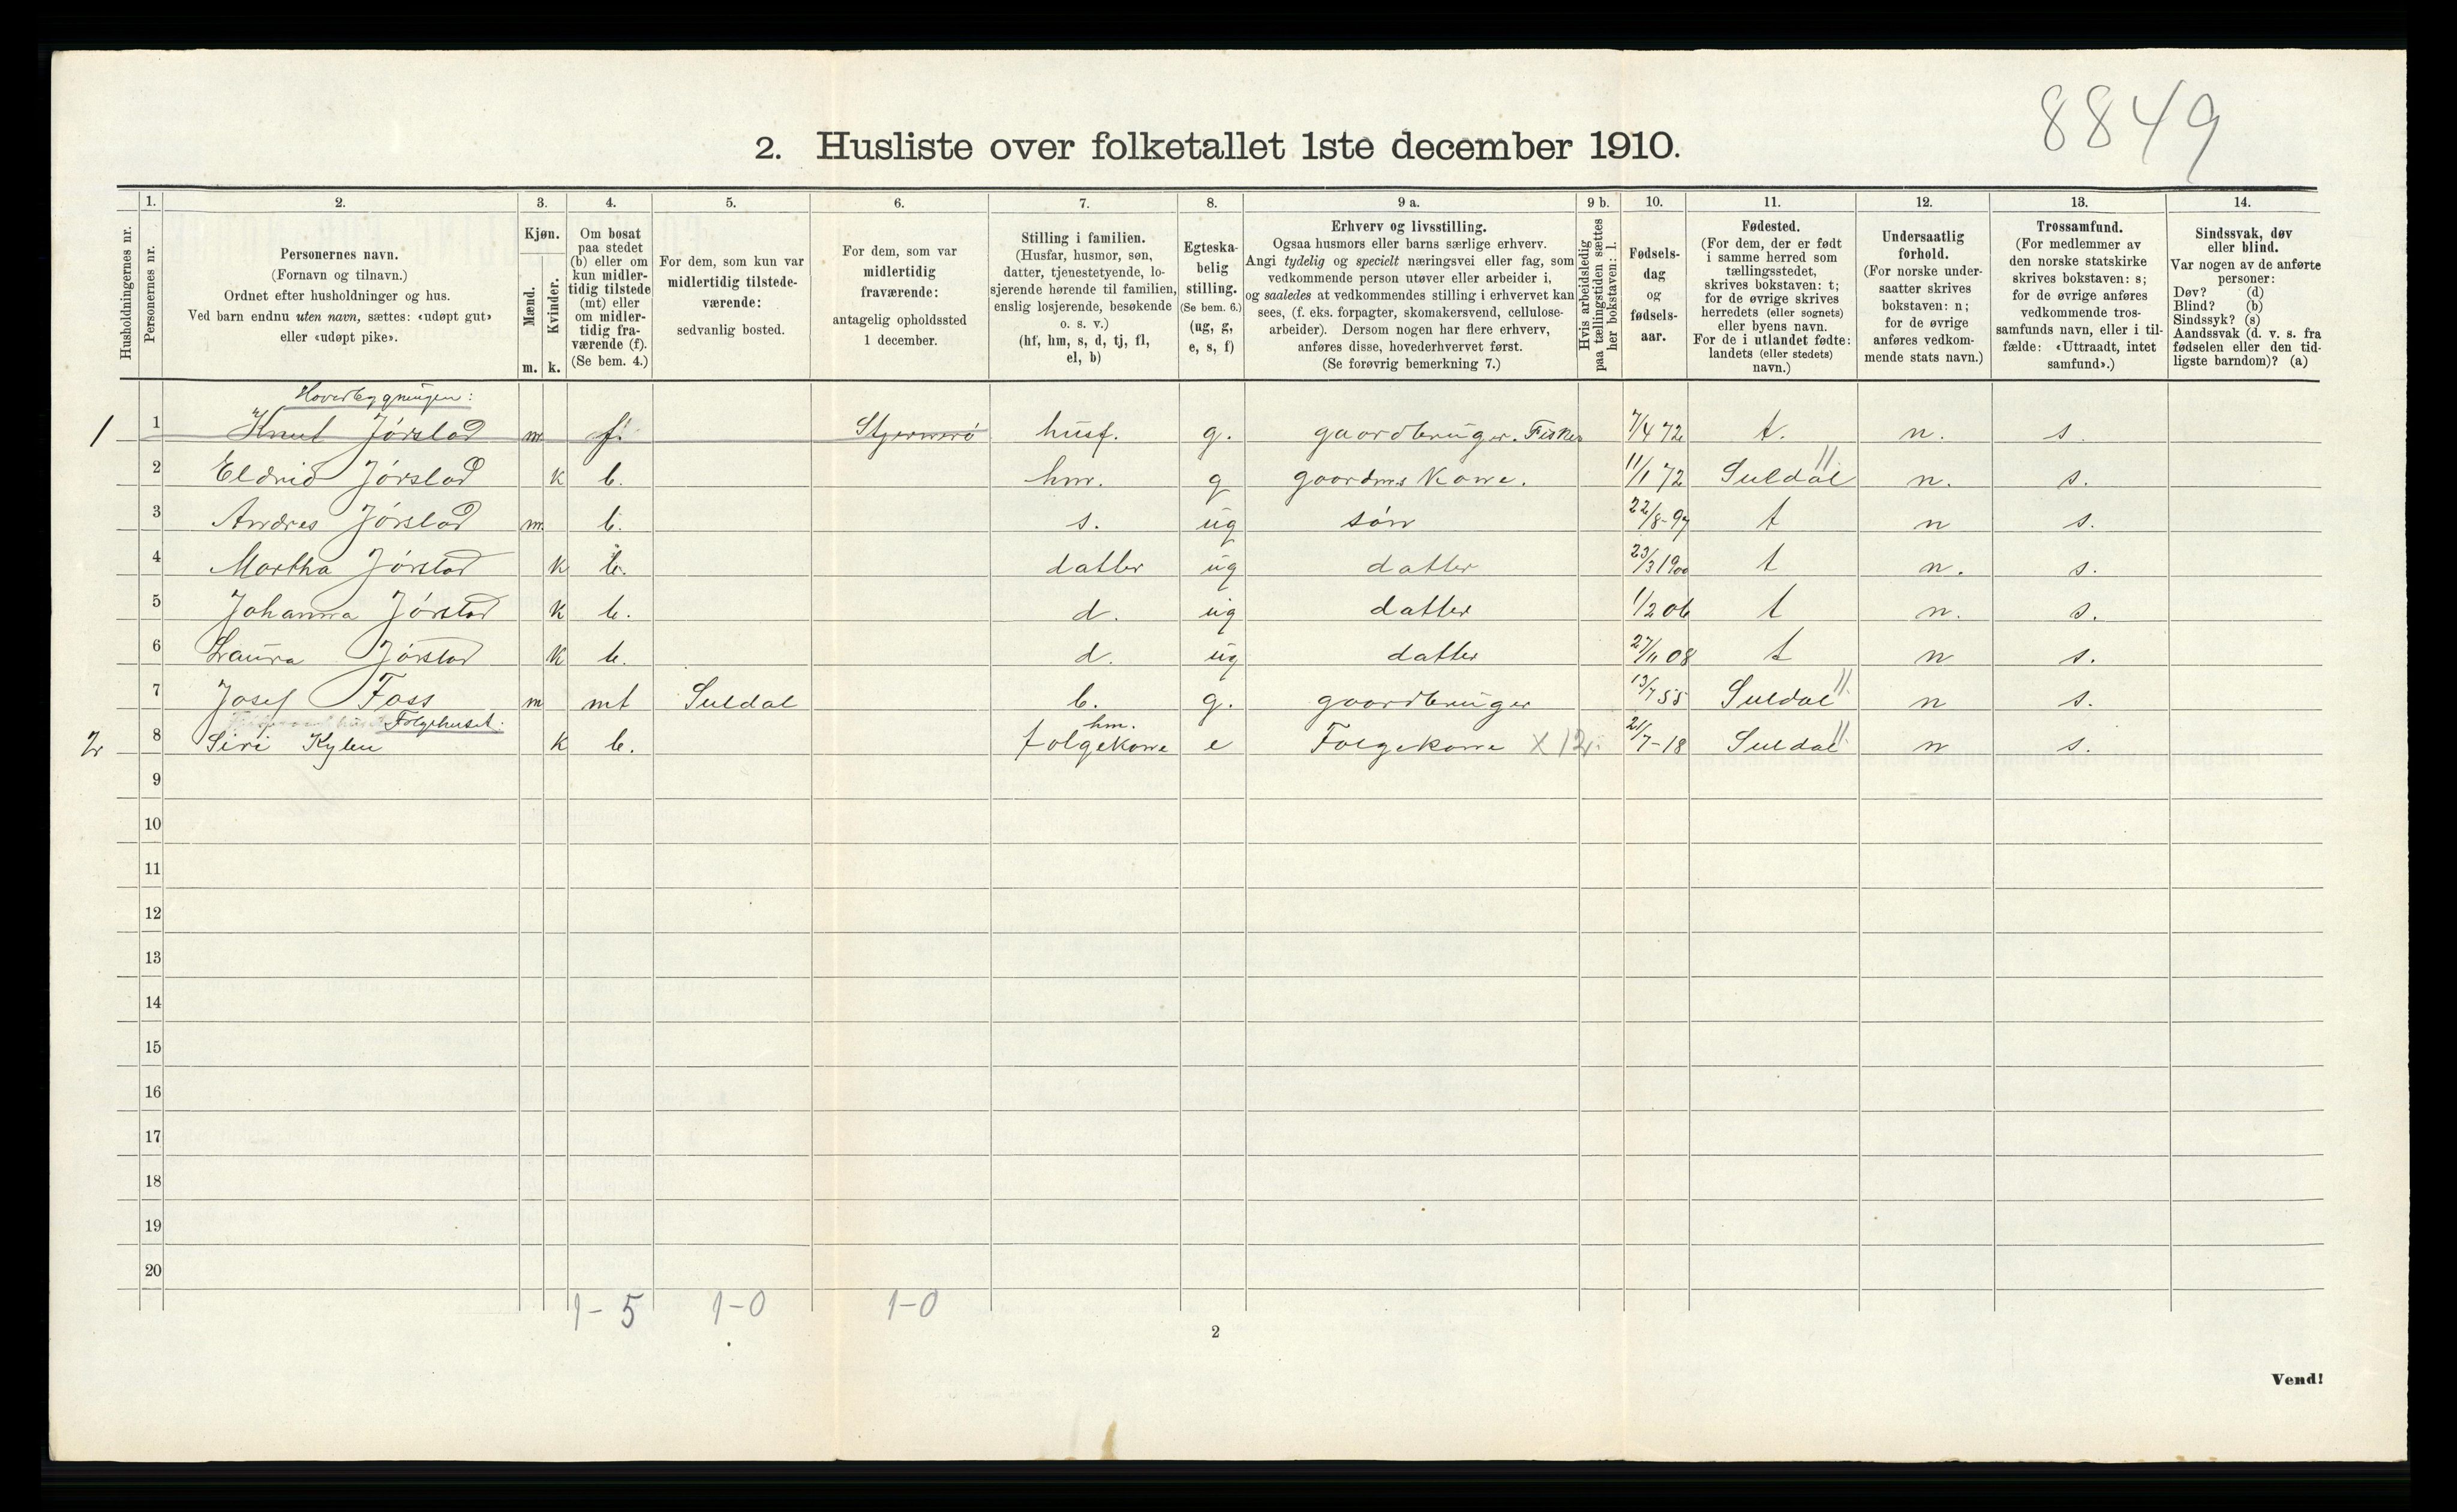 8849
2. Husliste over folketallet 1ste december 1910.
Husholdningernes nr.
1. Personernes nr.
2. Personernes navn. (Fornavn og tilnavn.) Ordnet efter husholdninger og hus. Ved barn endnu uten navn, sættes: «udøpt gut» eller «udøpt pike».
3. Kjøn. Mænd. m. Kvinder. k.
4. Om bosat paa stedet (b) eller om kun midlertidig tilstede (mt) eller om midlertidig fraværende (f). (Se bem. 4.)
5. For dem, som kun var midlertidig tilstedeværende: sedvanlig bosted.
6. For dem, som var midlertidig fraværende: antagelig opholdssted 1 december.
7. Stilling i familien. (Husfar, husmor, søn, datter, tjenestetyende, losjerende hørende til familien, enslig losjerende, besøkende o. s. v.) (hf, hm, s, d, tj, fl, el, b)
8. Egteskabelig stilling. (Se bem. 6.) (ug, g, e, s, f)
9 a. Erhverv og livsstilling. Ogsaa husmors eller barns særlige erhverv. Angi tydelig og specielt næringsvei eller fag, som vedkommende person utøver eller arbeider i, og saaledes at vedkommendes stilling i erhvervet kan sees, (f. eks. forpagter, skomakersvend, cellulosearbeider). Dersom nogen har flere erhverv, anføres disse, hovederhvervet først. (Se forøvrig bemerkning 7.)
9 b. Hvis arbeidsledig paa tællingstiden sættes her bokstaven: l.
10. Fødselsdag og fødselsaar.
11. Fødested. (For dem, der er født i samme herred som tællingsstedet, skrives bokstaven: t; for de øvrige skrives herredets (eller sognets) eller byens navn. For de i utlandet fødte: landets (eller stedets) navn.)
12. Undersaatlig forhold. (For norske undersaatter skrives bokstaven: n; for de øvrige anføres vedkommende stats navn.)
13. Trossamfund. (For medlemmer av den norske statskirke skrives bokstaven: s; for de øvrige anføres vedkommende trossamfunds navn, eller i tilfælde: «Uttraadt, intet samfund».)
14. Sindssvak, døv eller blind. Var nogen av de anførte personer: Døv? (d) Blind? (b) Sindssyk? (s) Aandssvak (d. v. s. fra fødselen eller den tidligste barndom)? (a)
Hovedbygningen:
1 1 Knut Jørstad m f. Stjernerö husf. g. gaardbruger. Fisker 7/4 72 t. n. s.
2 Eldrid Jørstad k b. hm. g gaardms Kone. 11/1 72 Suldal 11 n. s.
3 Andres Jørstad m b. s. ug søn 22/8-97 t n s.
4 Martha Jørstad k b. datter ug datter 23/3 1900 t n. s.
5 Johanna Jørstad k b. d. ug datter 1/2 06 t n. s.
6 Laura Jørstad k b. d. ug datter 27/11 08 t n s.
7 Josef Foss m mt Suldal b. g. gaardbruger 13/7 55 Suldal 11 n s.
Folgehuset: hm.
2 8 Siri Kylen k b. folgekone e Folgekone X 12. 21/7-18 Suldal 11 n s.
9
10
11
12
13
14
15
16
17
18
19
20
1-5 1-0 1-0
2
Vend!